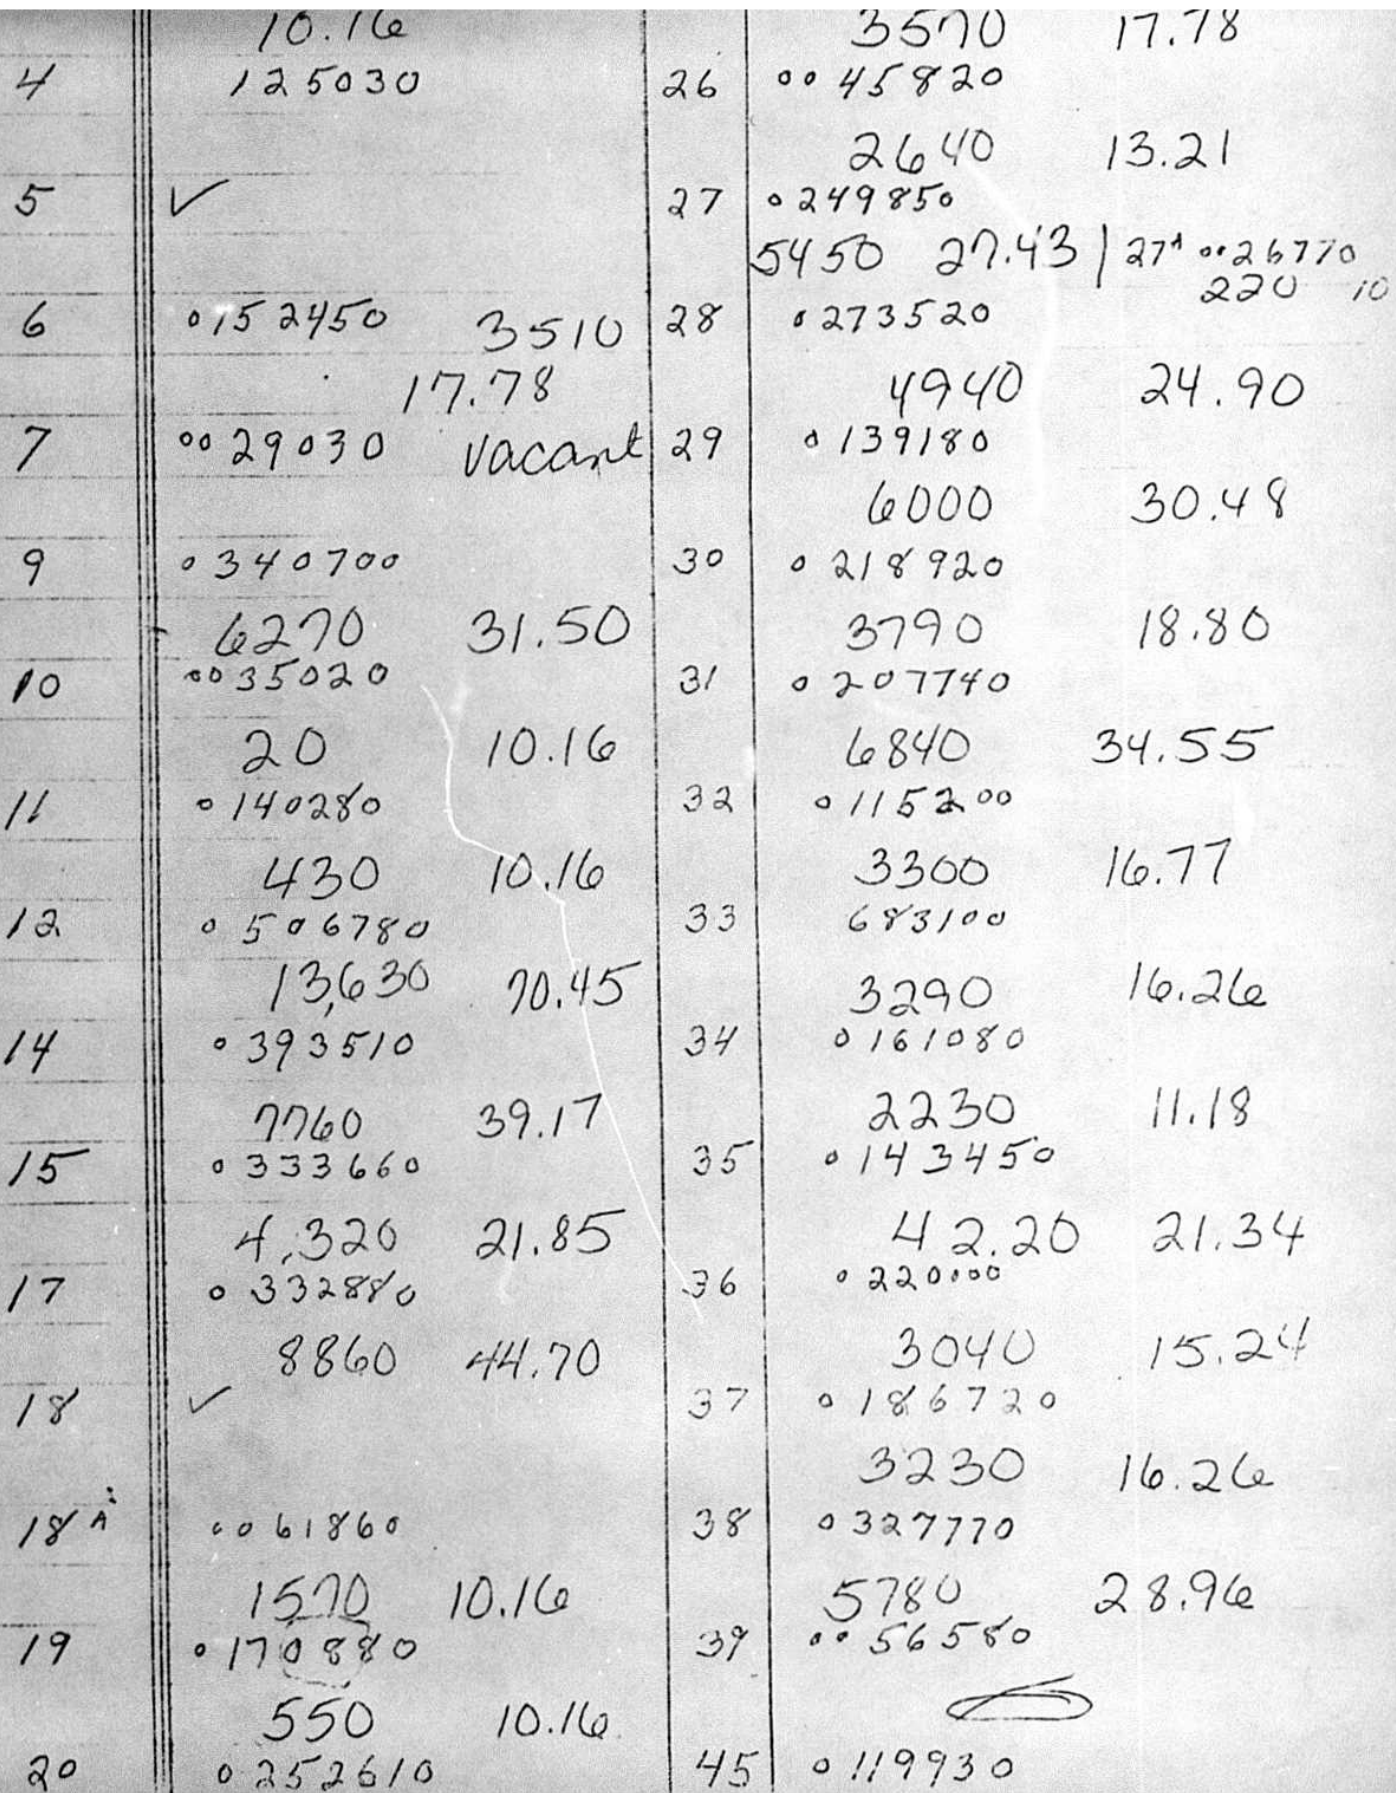 10.16
4 125030
5 ✓
6 0152450 3510
17.78
7 0029030 vacant
9 0340700
6270 31.50
10 0035020
20 10.16
11 0140280
430 10.16
12 0506780
13,630 70.45
14 0393510
7760 39.17
15 0333660
4,320 21.85
17 0332880
8860 44.70
18 ✓
18A 0061860
1570 10.16
19 0170880
550 10.16
20 0252610
3570 17.78
26 0045820
2640 13.21
27 0249850
5450 27.43 | 27A 0026770
220 10
28 0273520
4940 24.90
29 0139180
6000 30.48
30 0218920
3790 18.80
31 0207740
6840 34.55
32 0115200
3300 16.77
33 683100
3290 16.26
34 0161080
2230 11.18
35 0143450
42.20 21.34
36 0220000
3040 15.24
37 0186720
3230 16.26
38 0327770
5780 28.96
39 0056580
45 0119930